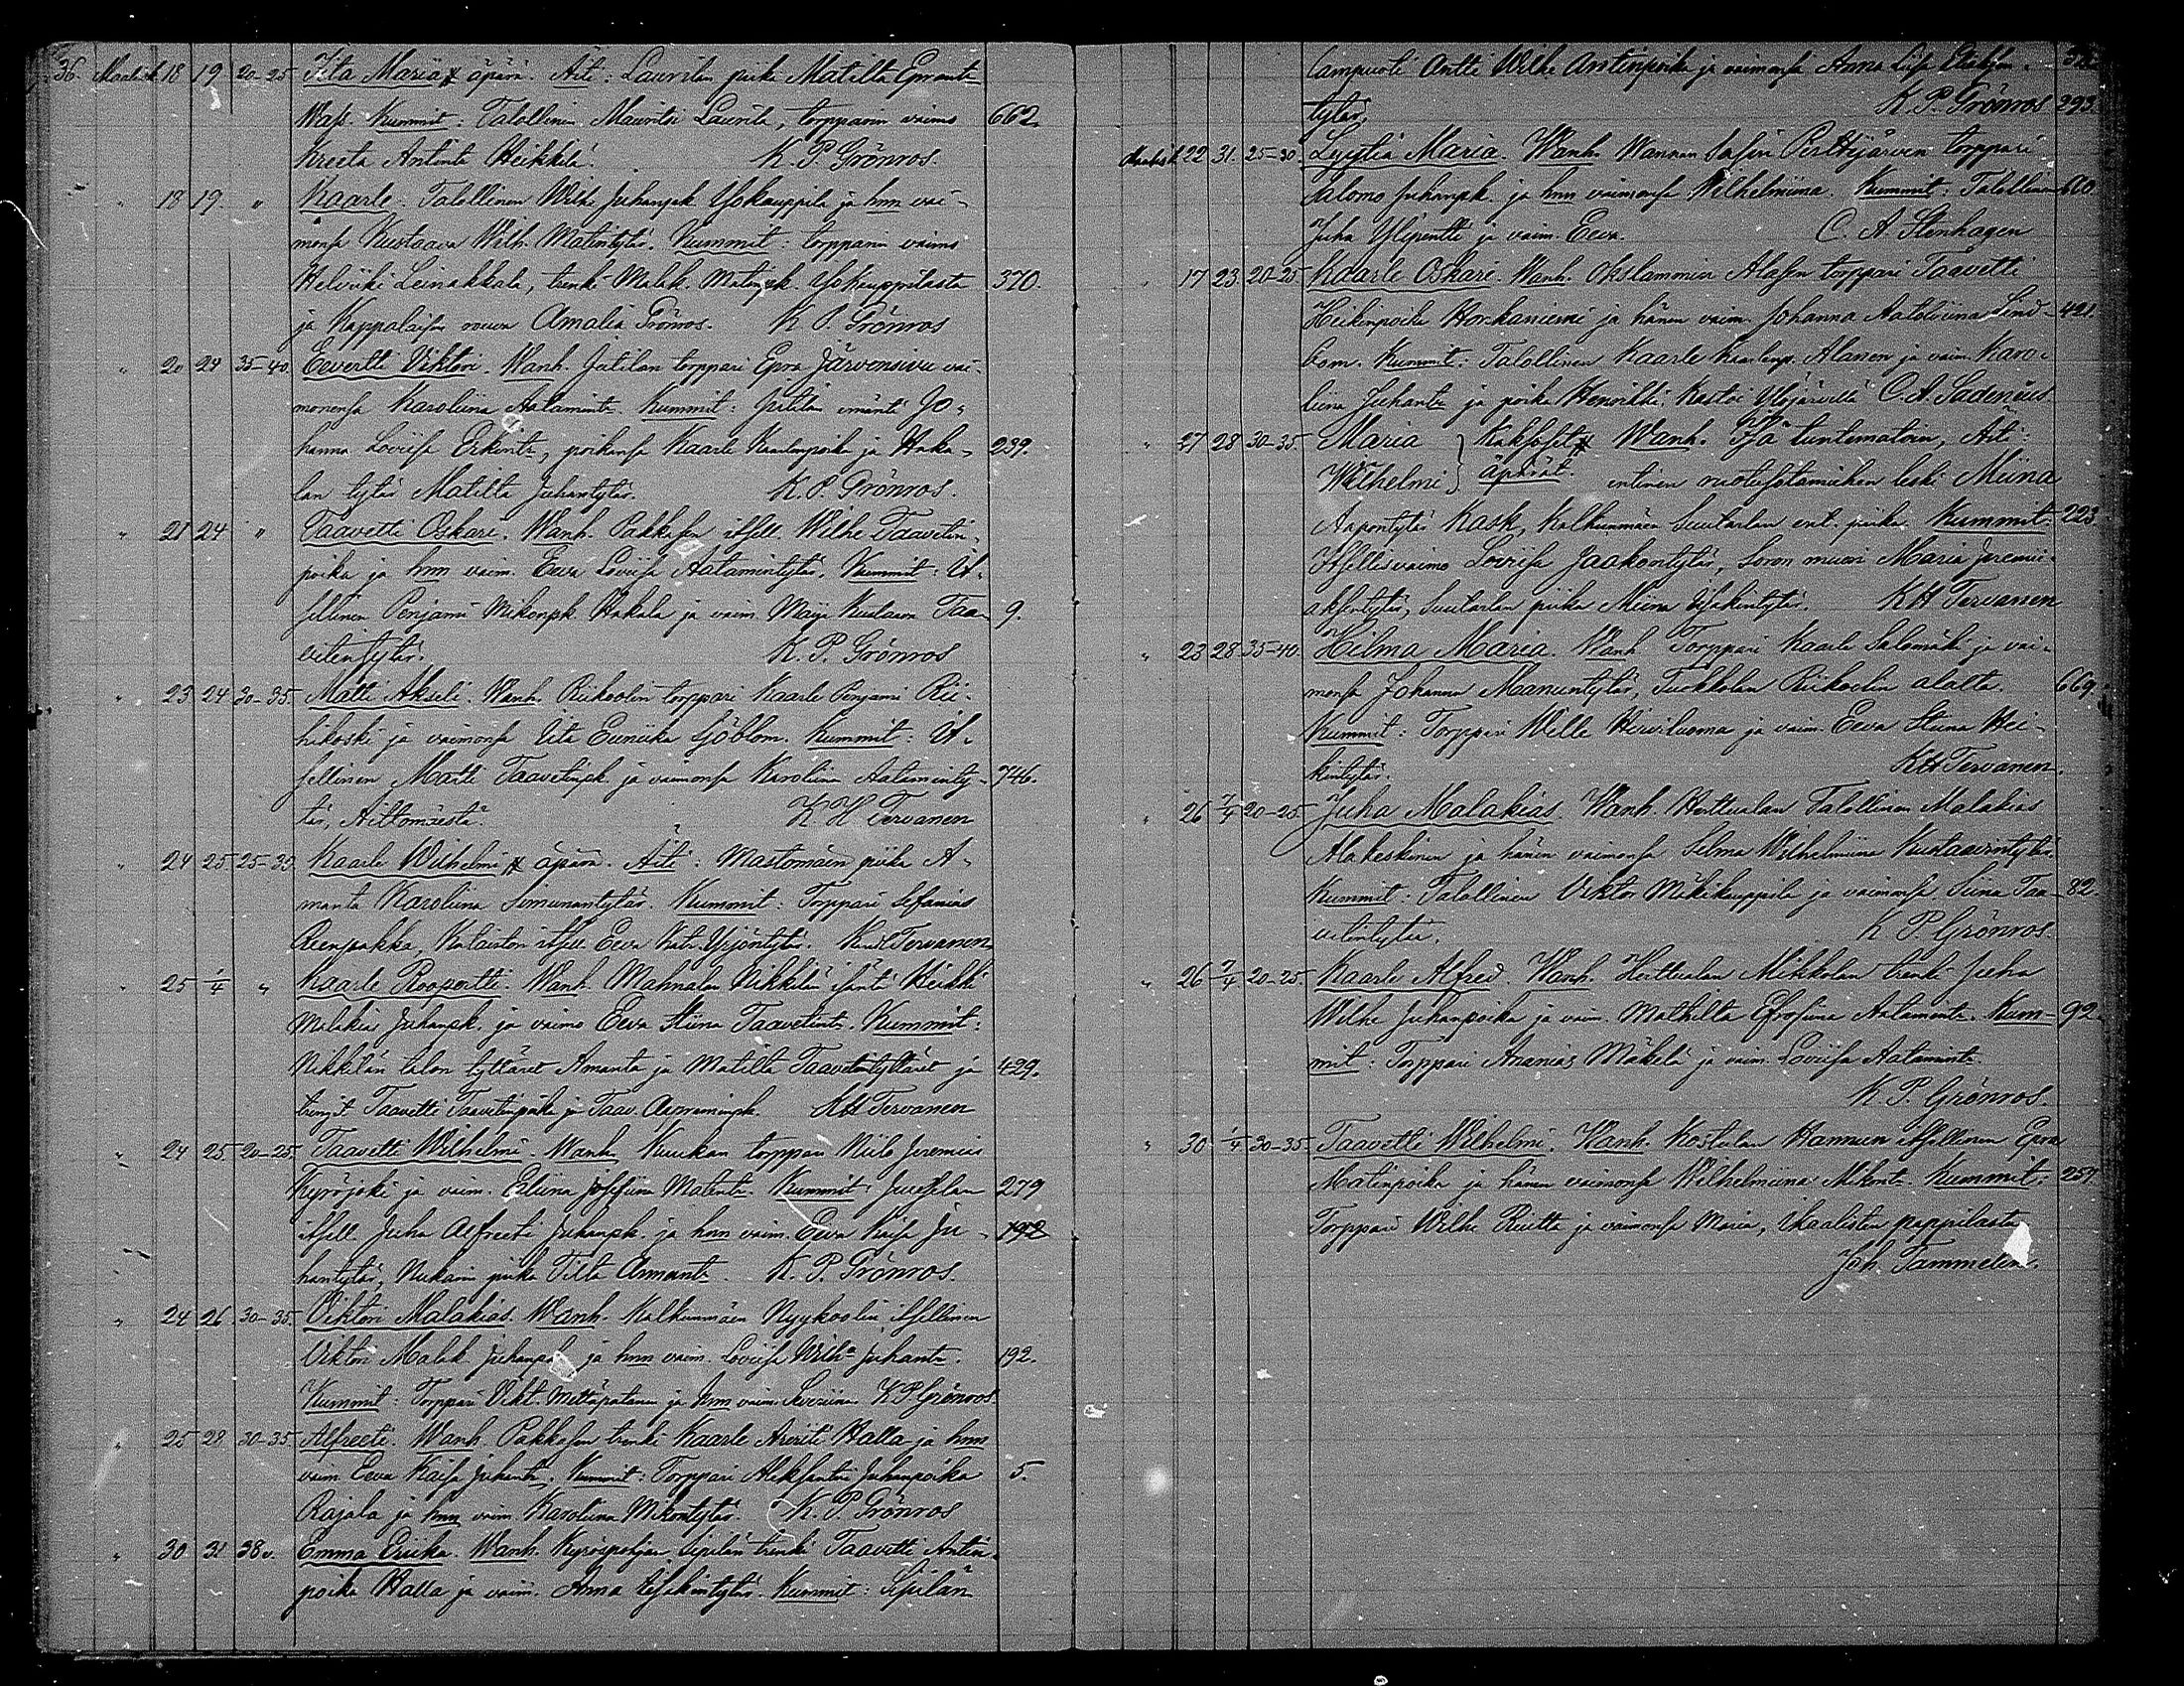 36. Maalisk. 18 19 20-25 Iita Maria äpärä. Äiti: Laurilan piika Matilta Eprantr
Wass. Kummit: Talollinen Mauritsi Laurila, torpparin vaimo 662.
Kreeta Antintr Heikkilä. K. P. Grönros.
" 18 19 " Kaarle. Talollinen Wilhe Juhanpk. Yökauppila ja hnn vai-
monsa Kustaava Wilh. Matintytär. Kummit: torpparin vaimo
Helviiki Leinakkala, trenki Malak. Matinpk. Yökauppilasta 370.
ja Kappalaisen rouva Amalia Grönros. K. P. Grönros
" 20 24 35-40. Eevertti Viktori. Wanh. Jutilan torppari Epra Järvensivu vai-
monensa Karoliina Aatamintr. Kummit: Jutilan emäntä Jo-
hanna Loviisa Erkintr, poikansa Kaarle Kaarlenpoika ja Haka- 239.
lan tytär Matilta Juhantytär. K. P. Grönros.
" 21 24 " Taavetti Oskari. Wanh. Pakkasen itsell. Wilhe Taavetin-
poika ja hnn vaim. Eeva Loviisa Aatamintytär. Kummit: It-
sellinen Penjami Mikonpk. Hakala ja vaim. Maija Kustaava Taa- 9.
vitentytär. K. P. Grönros
" 23 24 30-35. Matti Akseli. Wanh. Riikoolin torppari Kaarle Penjami Rii-
hikoski ja vaimonsa Iita Euniika Sjöblom. Kummit: It-
sellinen Matti Taavetinpk. ja vaimonsa Karoliina Aataminty- 746.
tär, Aittomäestä. K H Tervanen
" 24 25 25-30 Kaarle Wilhelmi äpärä. Äiti: Mastomäen piika A-
manta Karoliina Simunantytär. Kummit: Torppari Sefanias
Reenpakka, itsell. Eeva Katr. Yrjöntytär. Tervanen
" 25 1/4 " Kaarle Roopertti. Wanh. Mahnalan Nikkilän isäntä Heikki
Malakias Juhanpk. ja vaimo Eeva Stiina Taavetintr. Kummit:
Nikkilän talon tyttäret Amanta ja Matilta Taavetintyttäret ja 429.
trengit Taavetti Taavetinpoika ja Taav. Aapraminpk. KH Tervanen
" 24 25 20-25. Taavetti Wilhelmi. Wanh. Kuukan torppari Niilo Jeremias
Kyröjoki ja vaim. Eliina Josefiina Matintr. Kummit: Jussilan 279
itsell. Juha Alfreeti Juhanpk. ja hnn vaim. Eeva Kaisa Ju- 192
hantytär, piika Tilta Amantr. K. P. Grönros.
" 24 26 30-35. Viktori Malakias. Wanh. Kalkunmäen Nyykoolin itsellinen
Viktori Malak. Juhanpk. ja hnn vaim. Loviisa Wilhª Juhantr. 192.
Kummit: Torppari Vikt. Mettäpatanen ja hnn vaim. Severiina. K P Grönros.
" 25 28 30-35 Alfreeti. Wanh. Pakkasen trenki Kaarle Halla ja hnn
vaim. Eeva Kaisa Juhantr. Kummit: Torppari Aleksanteri Juhanpoika 5.
Rajala ja hnn vaim. Karoliina Mikontytär. K. P. Grönros
" 30 31 38 v. Emma Eriika. Wanh. Kyröspohjan Sipilän trenki Taavetti Antin-
poika Halla ja vaim. Anna Iisakintytär. Kummit: Sipilän
lampuoti Antti Wilhe Antinpoika ja vaimonsa Anna Liisa
tytär. K. P. Grönros 393.
Maalisk. 22 31. 25-30 Lyyytia Maria. Wanh. Wannan Sasin Perttijärven torppari
Salomo Juhanpk. ja hnn vaimonsa Wilhelmiina. Kummit: Talollinen 610.
Juha Ylipentti ja vaim. Eeva. C. A. Stenhagen
" 17 23 20-25 Kaarle Oskari. Wanh. Okslammin Alasen torppari Taavetti
Heikinpoika Horkaniemi ja hänen vaim. Johanna Aatoliina Lind- 421.
bom. Kummit: Talollinen Kaarle Kaarlenp. Alanen ja vaim. Karo-
liina Juhantr ja poika Henrikki; Kastoi Ylöjärvellä C. A. Sadenius
" 27 28 30-35. Maria } Kaksoset Wanh. Isä tuntematoin, Äiti:
Wilhelmi } äpärät. entinen ruotusotamiehen leski Miina
Aapontytär Kask, Kalkunmäen Suutarlan ent. piika. Kummit: 223
Itsellisvaimo Loviisa Jaakontytär, Soron muori Maria Jeremi-
aksentytär, Suutarlan piika Miina Iisakintytär. KH Tervanen
" 23 28 35-40. Hilma Maria. Wanh. Torppari Kaarle Salomäki ja vai-
monsa Johanna Manuntytär, Tuokkolan Riikoolin alalta. 669.
Kummit: Torppari Wille Hirviluoma ja vaim. Eeva Stiina Hei-
kintytär. KH Tervanen.
" 26 7/4 20-25. Juha Malakias. Wanh. Herttualan Talollinen Malakias
Alakeskinen ja hänen vaimonsa Selma Wilhelmiina Kustaavintytär.
Kummit: Talollinen Viktor Mäkikauppila ja vaimonsa Siina Taa- 82.
vetintytär. K P. Grönros.
" 26 7/4 20-25. Kaarle Alfred. Wanh. Herttualan Mikkolan trenki Juha
Wilhe Juhanpoika ja vaim. Mathilta Efrosiina Aatamintr. Kum- 92.
mit: Torppari Ananias Mäkelä ja vaim. Loviisa Aatamintr.
K. P. Grönros.
" 30 1/4 30-35. Taavetti Wilhelmi. Wanh. Kostulan Hannun itsellinen Epra
Matinpoika ja hänen vaimonsa Wilhelmiina Mikontr. Kummit: 257.
Torppari Wilhe Riutta ja vaimonsa Maria, Ikaalisten pappilasta
Joh. Tammelin.